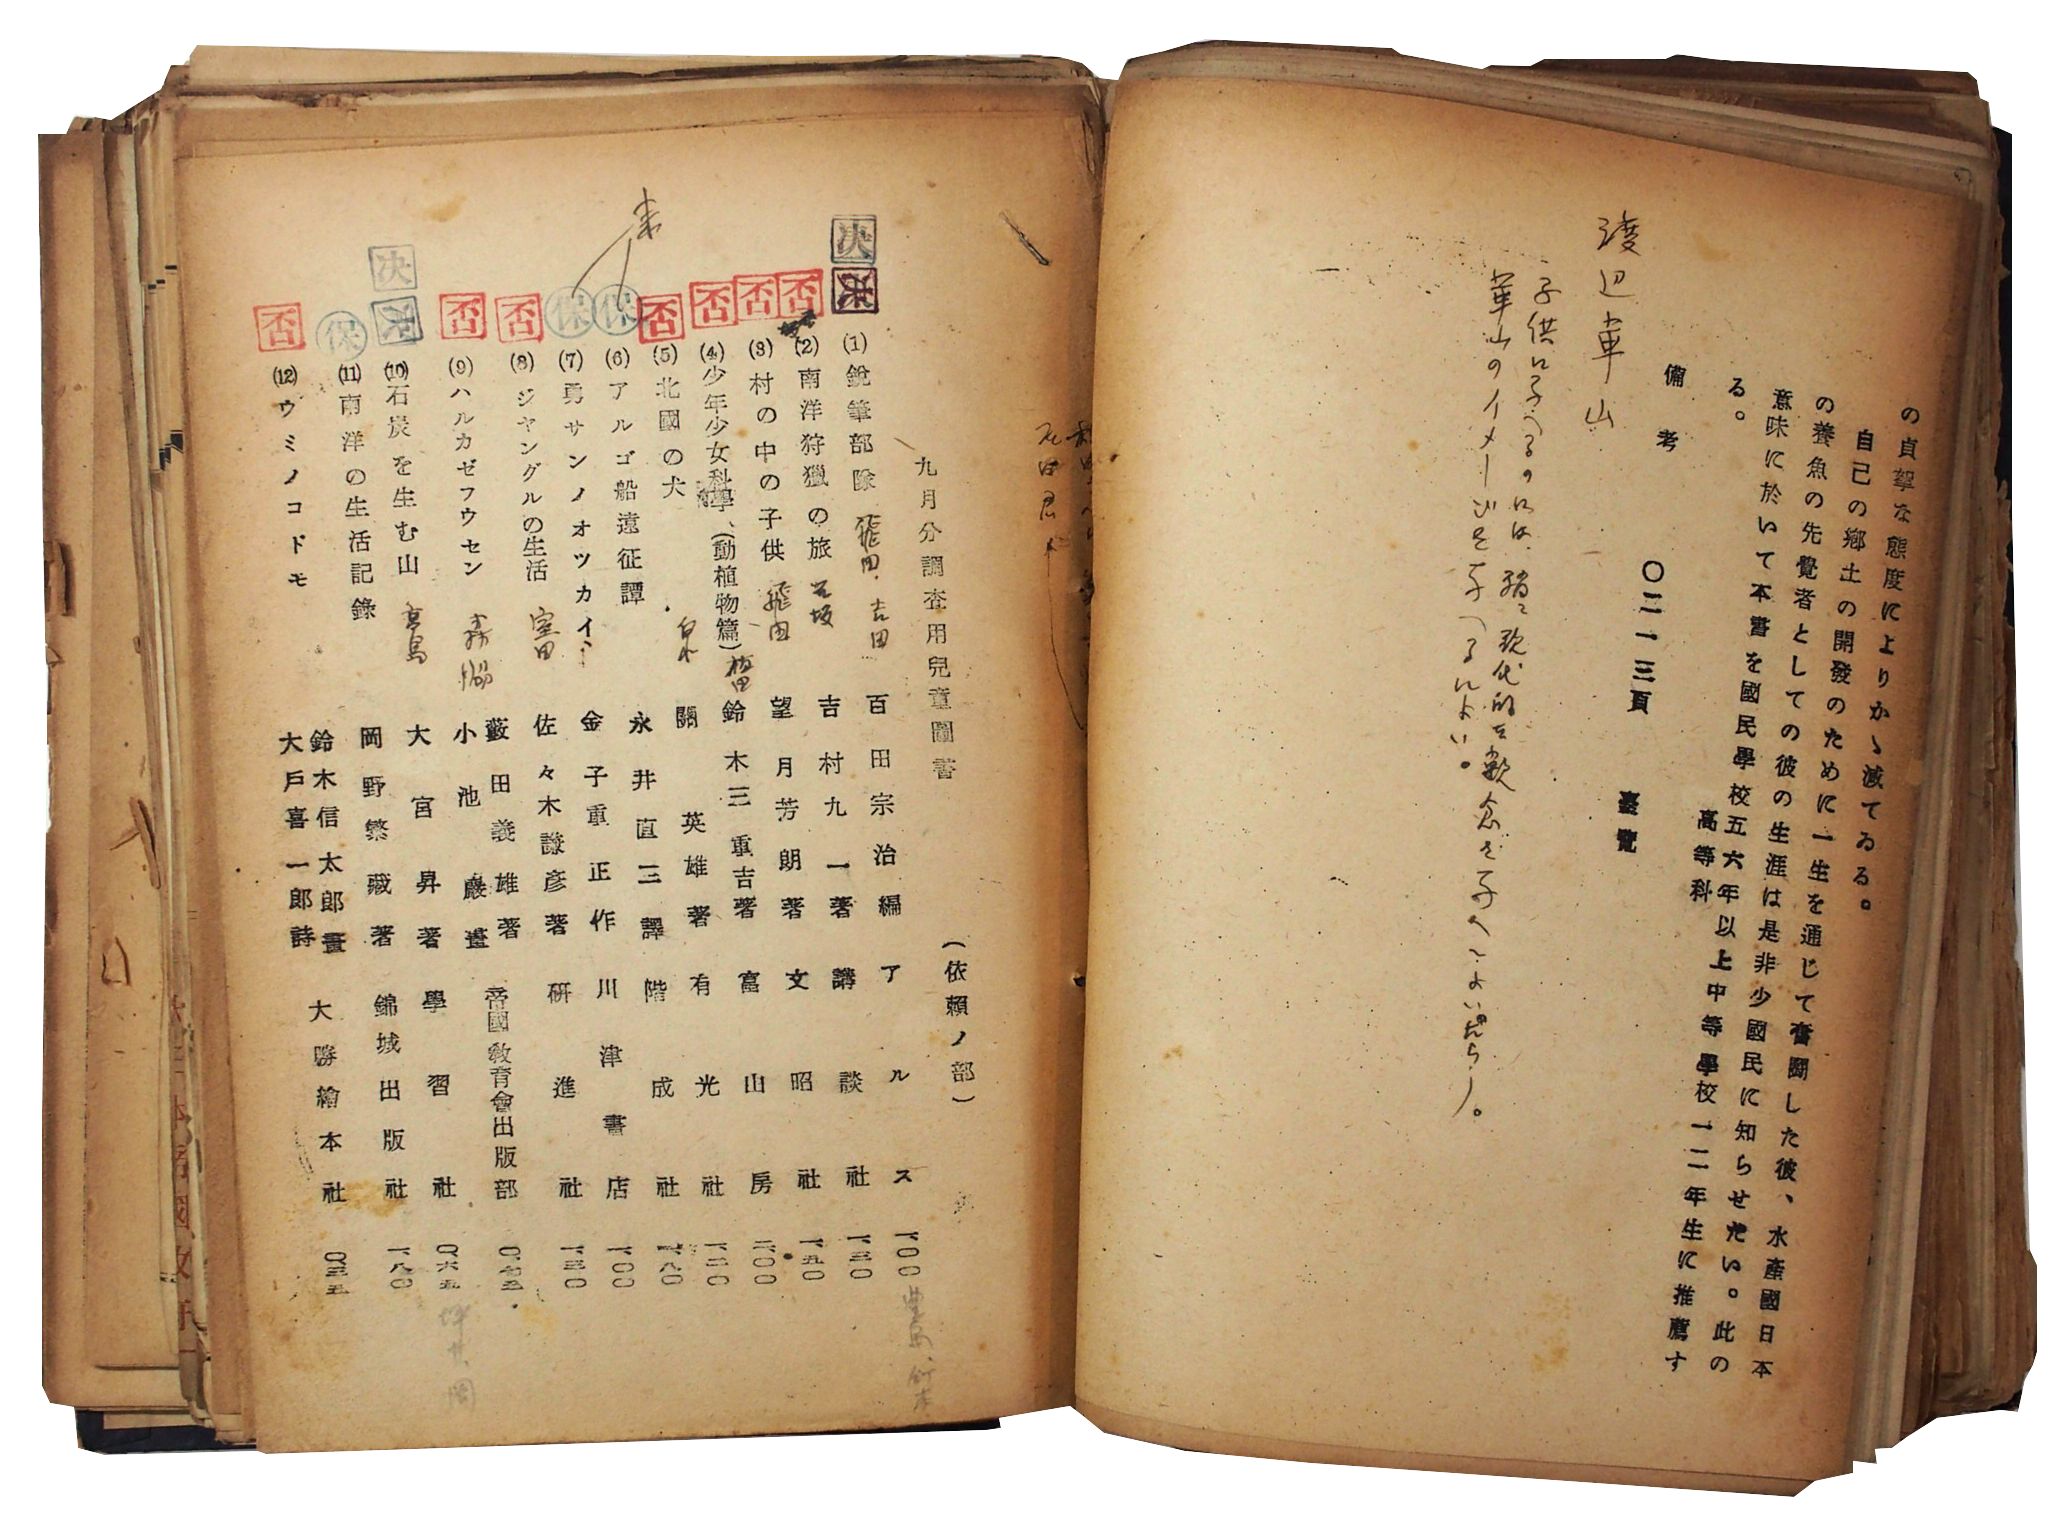 の真摯な態度によりか丶滅てゐる。
自己の鄕土の開發のために一生を通じて奮鬪した彼、水產國日本
の養魚の先覺者としての彼の生涯は是非少國民に知らせたい。此の
意味に於いて本書を國民學校五六年以上中等學校一二年生に推薦す
高等科
る。
備考
〇二一三頁
臺覽
渡辺崋山
子供に与へるのには、現代的な概念を与へてよいだらう。
華山のイメーヂを与へるによい。
九月分調査用兒童圖書
(依賴ノ部)
決
決
(1)銳筆部隊 飛田、吉田 百田宗治編 アルス 一、〇〇
否
(2)南洋狩獵の旅 吉村九一著 講談社 一、三〇
否
(3)村の中の子供 飛田 望月芳朗著 文昭社 一、五〇
否
(4)少年少女科學、(動植物篇) 鈴木三重吉著 富山房 二、〇〇
否
(5)北國の犬 關英雄著 有光社 一、二〇
保
(6)アルゴ船遠征譚 永井直二譯 階成社 一、八〇
保
(7)勇サンノオツカイ 金子重正作 川津書店 一、〇〇
否
(8)ジヤングルの生活 室田 佐々木謙彥著 硏進社 一、三〇
否
(9)ハルカゼフウセン 藪田義雄著 帝國敎育會出版部 〇、七五
小池巖畫
決
決
(10)石炭を生む山 高島 大宮昇著 學習社 〇、六五
保
(11)南洋の生活記錄 岡野繁藏著 錦城出版社 一、八〇
否
(12)ウミノコドモ 鈴木信太郎畫 大勝繪本社 〇、三五
大戶喜一郎詩